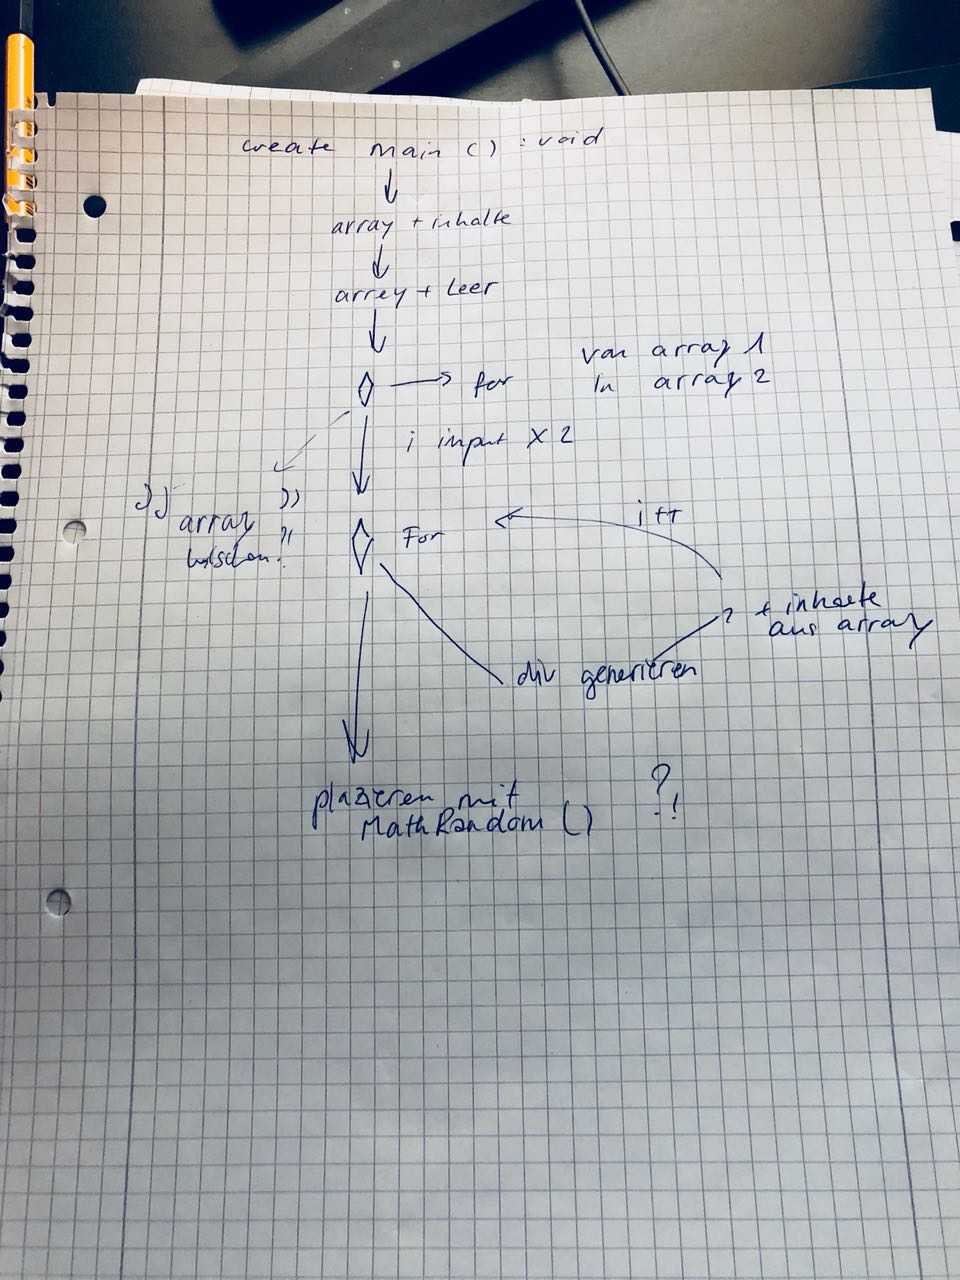 create main () : void
array + inhalte
arrey + Leer
for
van array 1
in array 2
i input x 2
array
For
i ++
? + inhalte
aus array
div generieren
plazieren mit
MathRandom ()
?!